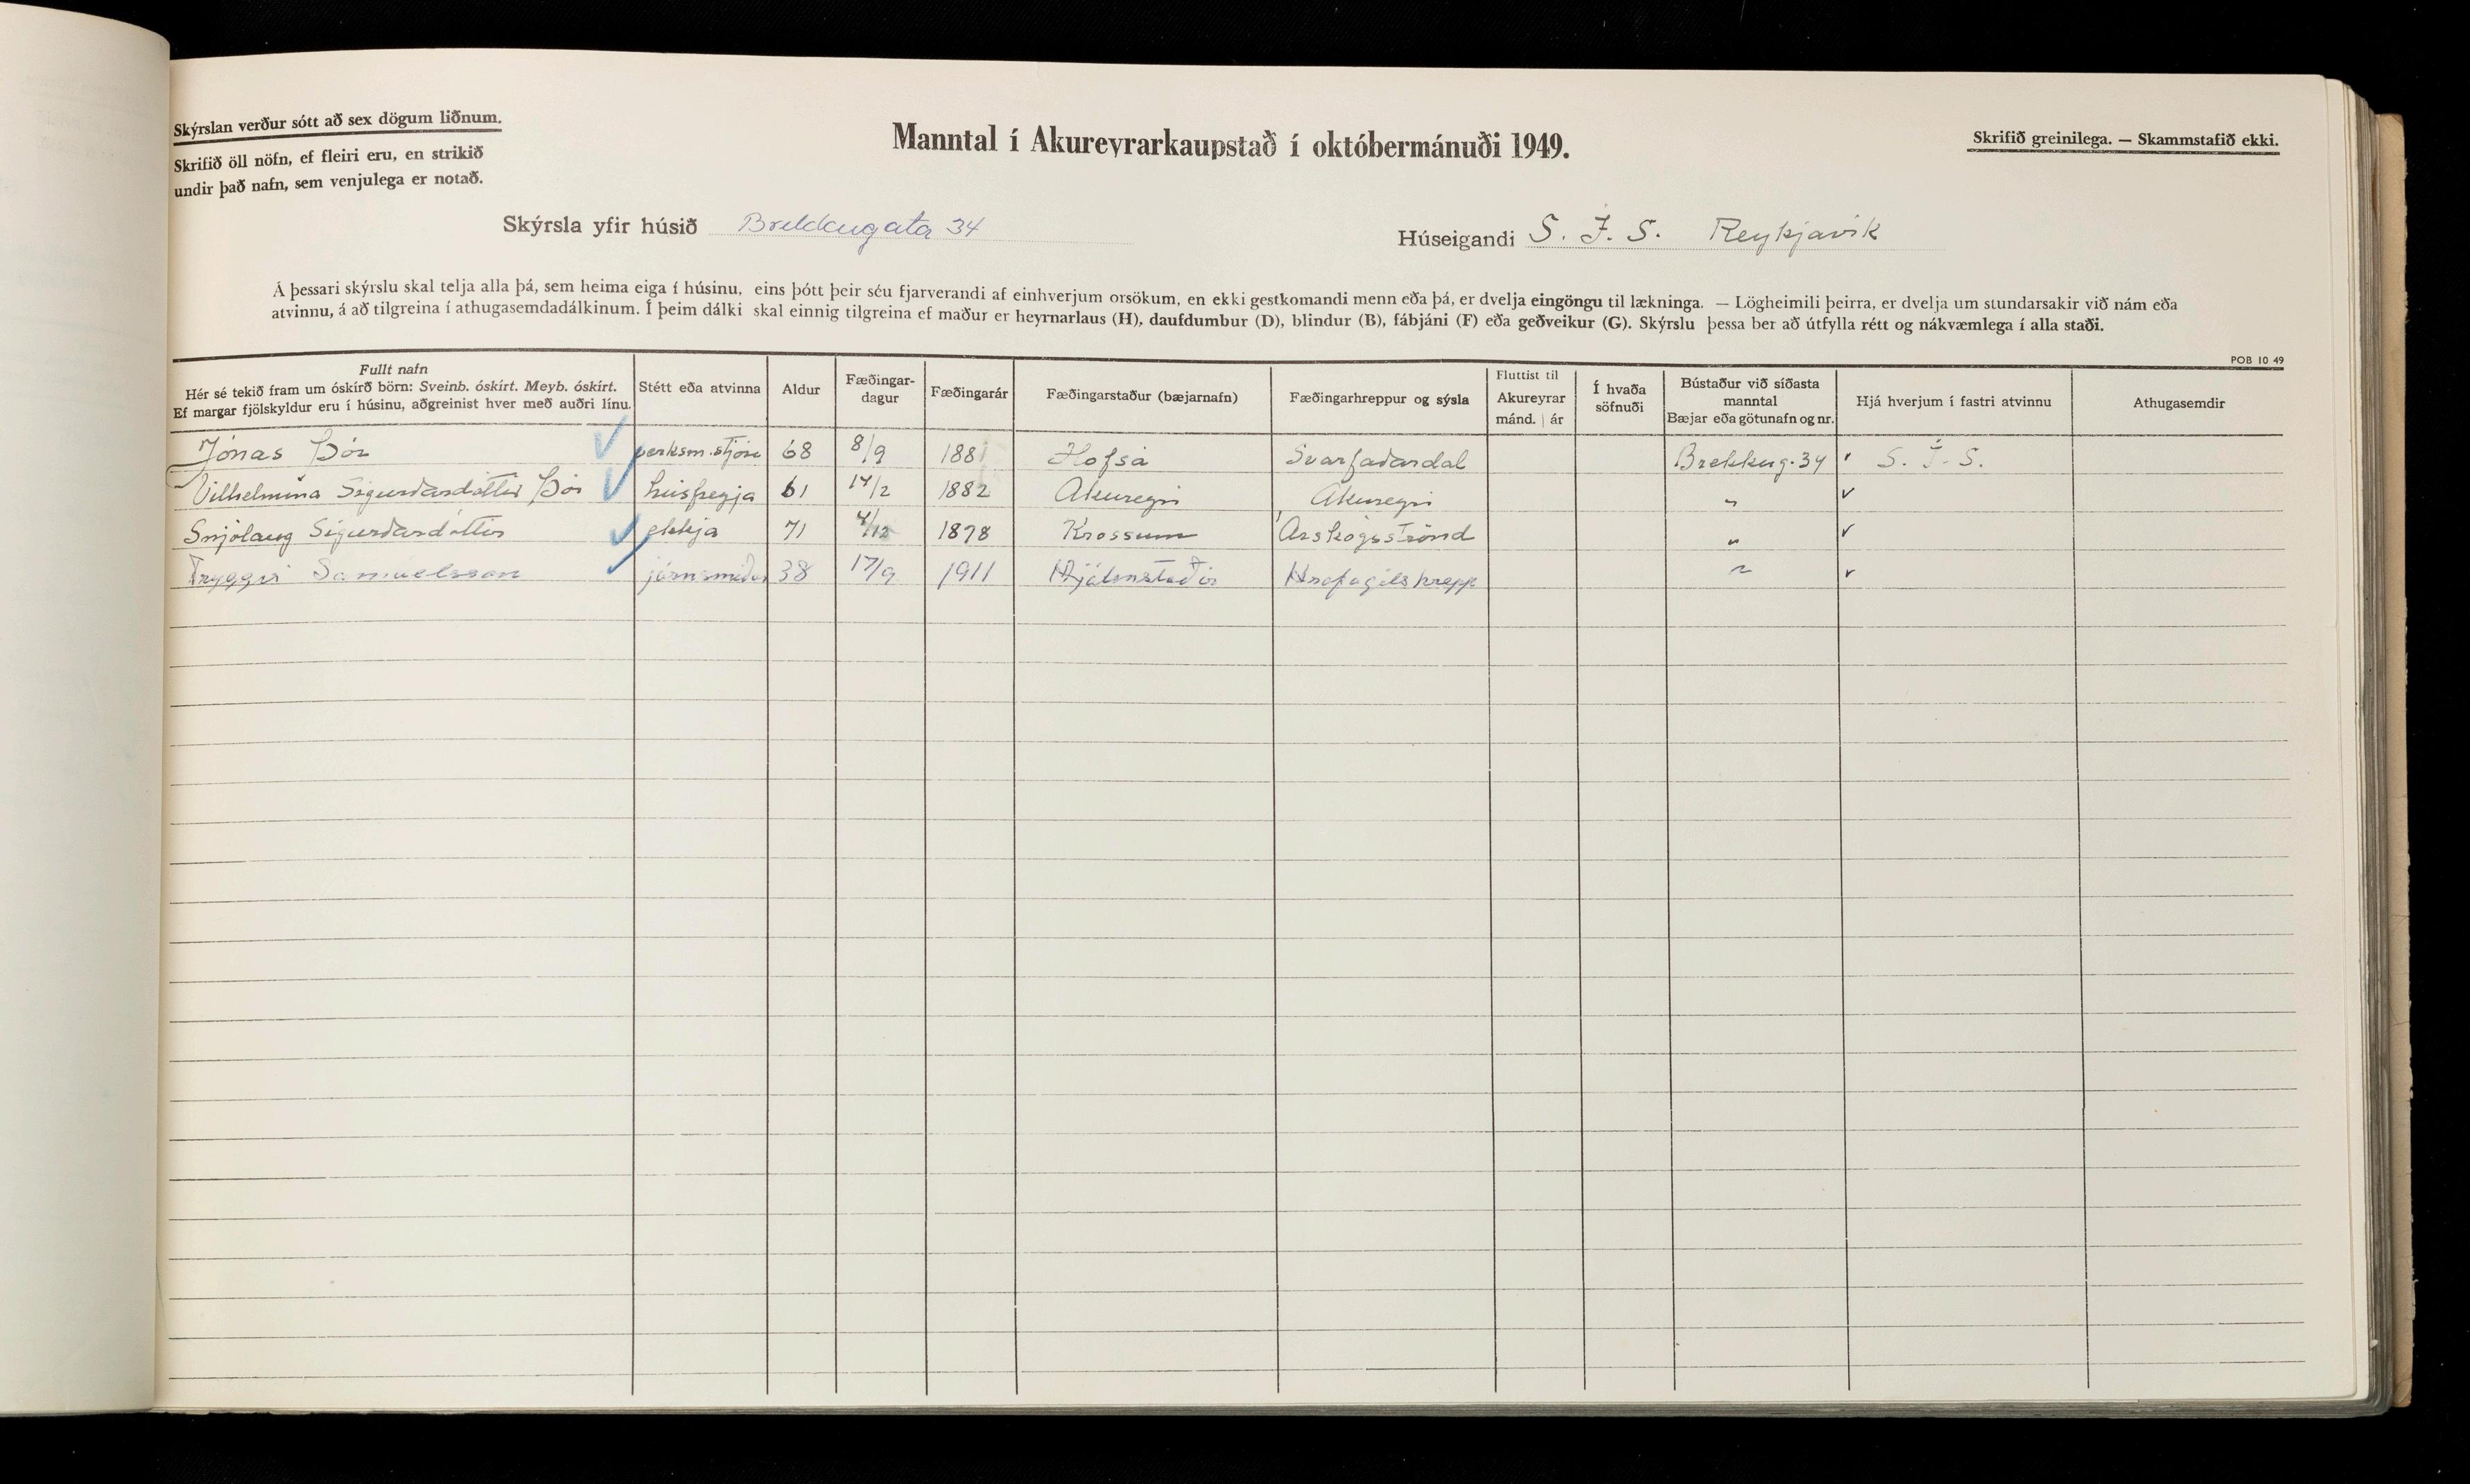 Skýrslan verður sótt að sex dögum liðnum.
Skrifið öll nöfn, ef fleiri eru, en strikið
undir það nafn, sem venjulega er notað.
Manntal í Akureyrarkaupstað í októbermánuði 1949.
Skrifið greinilega. — Skammstafið ekki.
Skýrsla yfir húsið Brekkugata 34
Húseigandi S. Í. S. Reykjavík
Á þessari skýrslu skal telja alla þá, sem heima eiga í húsinu, eins þótt þeir séu fjarverandi af einhverjum orsökum, en ekki gestkomandi menn eða þá, er dvelja eingöngu til lækninga. — Lögheimili þeirra, er dvelja um stundarsakir við nám eða
atvinnu, á að tilgreina í athugasemdadálkinum. Í þeim dálki skal einnig tilgreina ef maður er heyrnarlaus (H), daufdumbur (D), blindur (B), fábjáni (F) eða geðveikur (G). Skýrslu þessa ber að útfylla rétt og nákvæmlega í alla staði.
POB 10 49
Fullt nafn
Hér sé tekið fram um óskírð börn: Sveinb. óskírt. Meyb. óskírt.
Ef margar fjölskyldur eru í húsinu, aðgreinist hver með auðri línu.
Stétt eða atvinna
Aldur
Fæðingar-
dagur
Fæðingarár
Fæðingarstaður (bæjarnafn)
Fæðingarhreppur og sýsla
Fluttist til
Akureyrar
mánd. | ár
Í hvaða
söfnuði
Bústaður við síðasta
manntal
Bæjar eða götunafn og nr.
Hjá hverjum í fastri atvinnu
Athugasemdir
Jónas Þór verksm.stjóri 68 8/9 1881 Hofsá Svarfaðardal Brekkug. 34 S. Í. S.
Vilhelmína Sigurðardóttir Þór húsfreyja 61 14/2 1882 Akureyri Akureyri "
Snjólaug Sigurðardóttir ekkja 71 4/12 1878 Krossum Árskógsströnd "
Tryggvi Samúelsson járnsmiður 38 17/9 1911 Hjálmstaðir Hrafnagilshrepp "